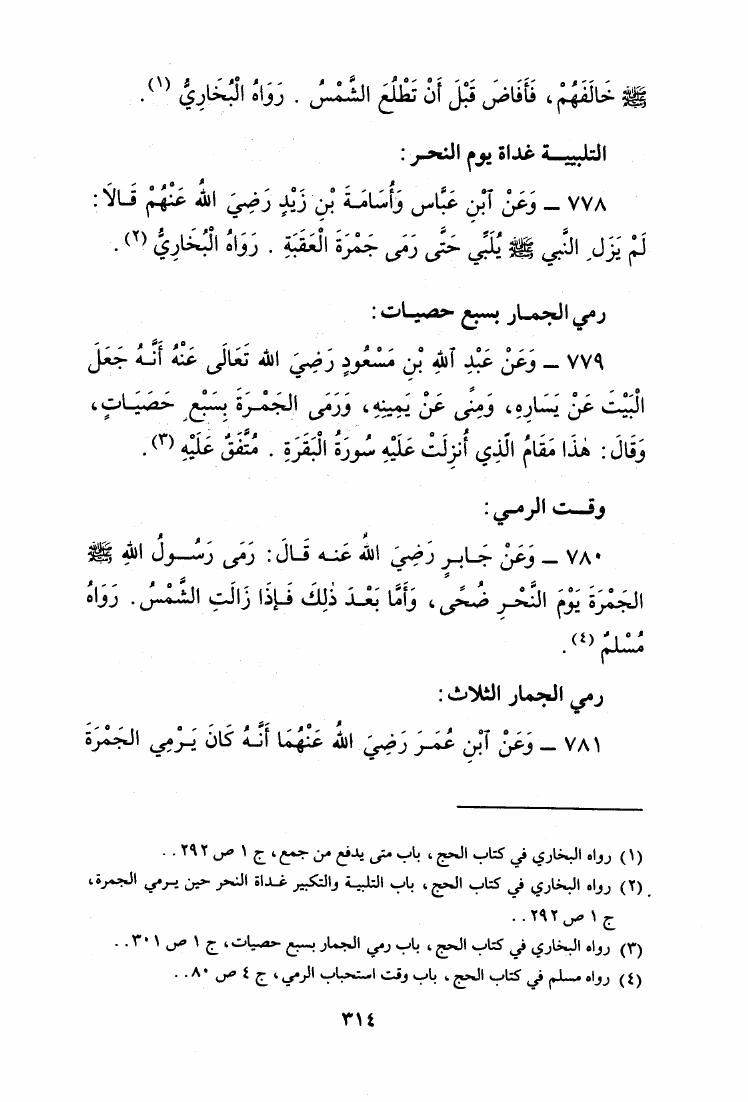 ﷺ خَالَفَهُمْ، فَأَفَاضَ قَبْلَ أَنْ تَطْلُعَ الشَّمْسُ . رَوَاهُ الْبُخَارِيُّ (١).
التلبيـــة غداة يوم النحـر :
٧٧٨ ــ وَعَنْ ٱبْنِ عَبَّاسٍ وَأُسَامَـةَ بْنِ زَيْدٍ رَضِيَ اللهُ عَنْهُمْ قَـالَا :
لَمْ يَزَلِ النَّبي ﷺ يُلَبِّي حَتَّى رَمَى جَمْرَةَ الْعَقَبَةِ . رَوَاهُ الْبُخَارِيُّ (٢).
رمي الجمـار بسبع حصيـات :
٧٧٩ ــ وَعَنْ عَبْدِ ٱللهِ بْنِ مَسْعُودٍ رَضِيَ الله تَعَالَى عَنْهُ أَنَّـهُ جَعَلَ
الْبَيْتَ عَنْ يَسَارِهِ، وَمِنًى عَنْ يَمِينِهِ، وَرَمَى الجَمْـرَةَ بِسَبْعِ حَصَيَـاتٍ،
وَقَالَ : هٰذَا مَقَامُ الَّذِي أُنزِلَتْ عَلَيْهِ سُورَةُ الْبَقَرَةِ . مُتَّفَقٌ عَلَيْهِ (٣).
وقــت الرمـي :
٧٨٠ ــ وَعَنْ جَـابـرٍ رَضِيَ اللهُ عَنـه قَـالَ : رَمَى رَسُــولُ اللهِ ﷺ
الجَمْرَةَ يَوْمَ النَّحْـرِ ضُحًى، وَأَمَّا بَعْـدَ ذٰلِكَ فَـإِذَا زَالَتِ الشَّمْسُ. رَوَاهُ
مُسْلِمٌ (٤).
رمي الجمار الثلاث :
٧٨١ ــ وَعَنْ ٱبْنِ عُمَـرَ رَضِيَ اللهُ عَنْهُمَا أَنَّـهُ كَانَ يَـرْمِي الجَمْرَةَ
(١) رواه البخاري في كتاب الحج، باب متى يدفع من جمع، ج ١ ص ٢٩٢ . .
(٢) رواه البخاري في كتاب الحج، باب التلبية والتكبير غـداة النحر حين يـرمي الجمرة،
ج ١ ص ٢٩٢ . .
(٣) رواه البخاري في كتاب الحج، باب رمي الجمار بسبع حصيات، ج ١ ص ٣٠١ . .
(٤) رواه مسلم في كتاب الحج، باب وقت استحباب الرمي، ج ٤ ص ٨٠ . .
٣١٤